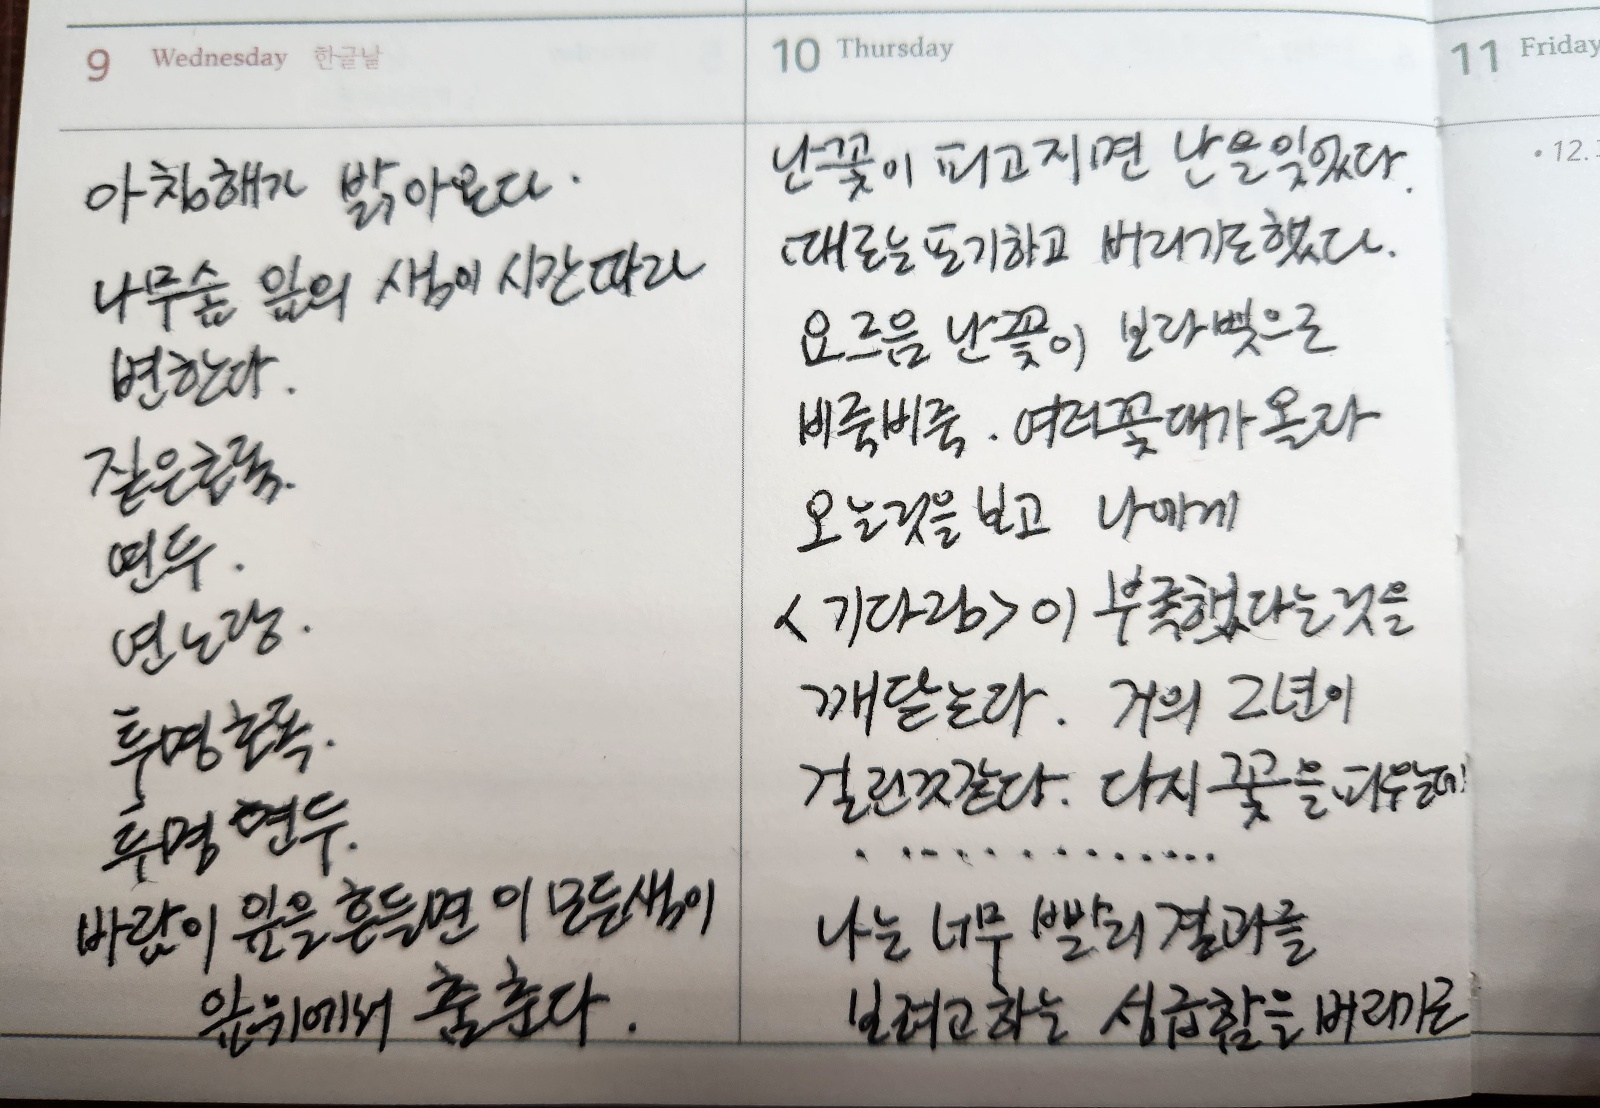 9 Wednesday 한글날
아침해가 밝아온다.
나무숲 잎의 색이 시간따라
변한다.
짙은초록.
연두.
연노랑.
투명초록.
투명연두.
바람이 잎을 흔들면 이 모든색이
잎위에서 춤춘다.
10 Thursday
난꽃이 피고지면 난을잊었다.
때로는포기하고 버리기도했다.
요르음 난꽃이 보라빛으로
비쭉비쭉. 여러꽃대가 올라
오는것을 보고 나에게
<기다림>이 부족했다는것을
깨닫는다. 거의 2년이
걸린것같다. 다시 꽃을피우는데
. . . . . . . . . . . . . .
나는 너무 빨리 결과를
보려고하는 성급함을 버리기로
11 Friday
• 12.